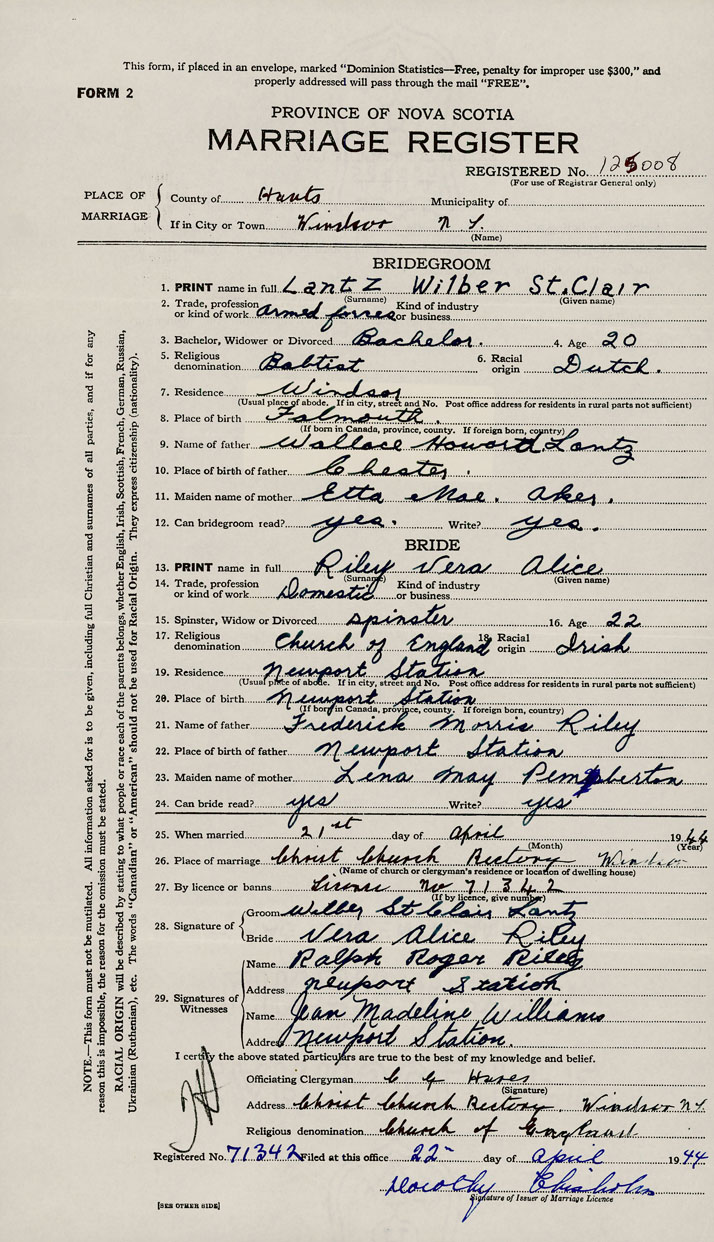 This form, if placed in an envelope, marked "Dominion Statistics—Free, penalty for improper use $300," and
properly addressed will pass through the mail "FREE".
FORM 2
PROVINCE OF NOVA SCOTIA
MARRIAGE REGISTER
REGISTERED No. 125008
(For use of Registrar General only)
PLACE OF MARRIAGE
County of Hants Municipality of
If in City or Town Windsor N S.
(Name)
BRIDEGROOM
1. PRINT name in full Lantz Wilber St.Clair
(Surname) (Given name)
2. Trade, profession or kind of work armed forces Kind of industry or business
3. Bachelor, Widower or Divorced Bachelor. 4. Age 20
5. Religious denomination Babtist 6. Racial origin Dutch.
7. Residence Windsor
(Usual place of abode. If in city, street and No. Post office address for residents in rural parts not sufficient)
8. Place of birth Falmouth.
(If born in Canada, province, county. If foreign born, country)
9. Name of father Wallace Howard Lantz
10. Place of birth of father Chester.
11. Maiden name of mother Etta Mae. Aker.
12. Can bridegroom read? yes. Write? yes.
BRIDE
13. PRINT name in full Riley Vera Alice
(Surname) (Given name)
14. Trade, profession or kind of work Domestic Kind of industry or business
15. Spinster, Widow or Divorced spinster 16. Age 22
17. Religious denomination Church of England 18. Racial origin Irish
19. Residence Newport Station
(Usual place of abode. If in city, street and No. Post office address for residents in rural parts not sufficient)
20. Place of birth Newport Station
(If born in Canada, province, county. If foreign born, country)
21. Name of father Frederick Morris Riley
22. Place of birth of father Newport Station
23. Maiden name of mother Lena May Pemberton
24. Can bride read? yes Write? yes
25. When married 21st day of April 1944
(Month) (Year)
26. Place of marriage Christ Church Rectory Windsor
(Name of church or clergyman's residence or location of dwelling house)
27. By licence or banns License No 71342
(If by licence, give number)
28. Signature of
Groom Wilber St Clair Lantz
Bride Vera Alice Riley
29. Signatures of Witnesses
Name Ralph Roger Riley
Address Newport Station
Name Jean Madeline Williams
Address Newport Station.
I certify the above stated particulars are true to the best of my knowledge and belief.
Officiating Clergyman C G
(Signature)
Address Christ Church Rectory. Windsor N S.
Religious denomination Church of England
Registered No. 71342 Filed at this office 22 day of April 1944
Dorothy Chisholm
Signature of Issuer of Marriage Licence
[SEE OTHER SIDE]
NOTE.—This form must not be mutilated. All information asked for is to be given, including full Christian and surnames of all parties, and if for any
reason this is impossible, the reason for the omission must be stated.
RACIAL ORIGIN will be described by stating to what people or race each of the parents belongs, whether English, Irish, Scottish, French, German, Russian,
Ukrainian (Ruthenian), etc. The words "Canadian" or "American" should not be used for Racial Origin. They express citizenship (nationality).